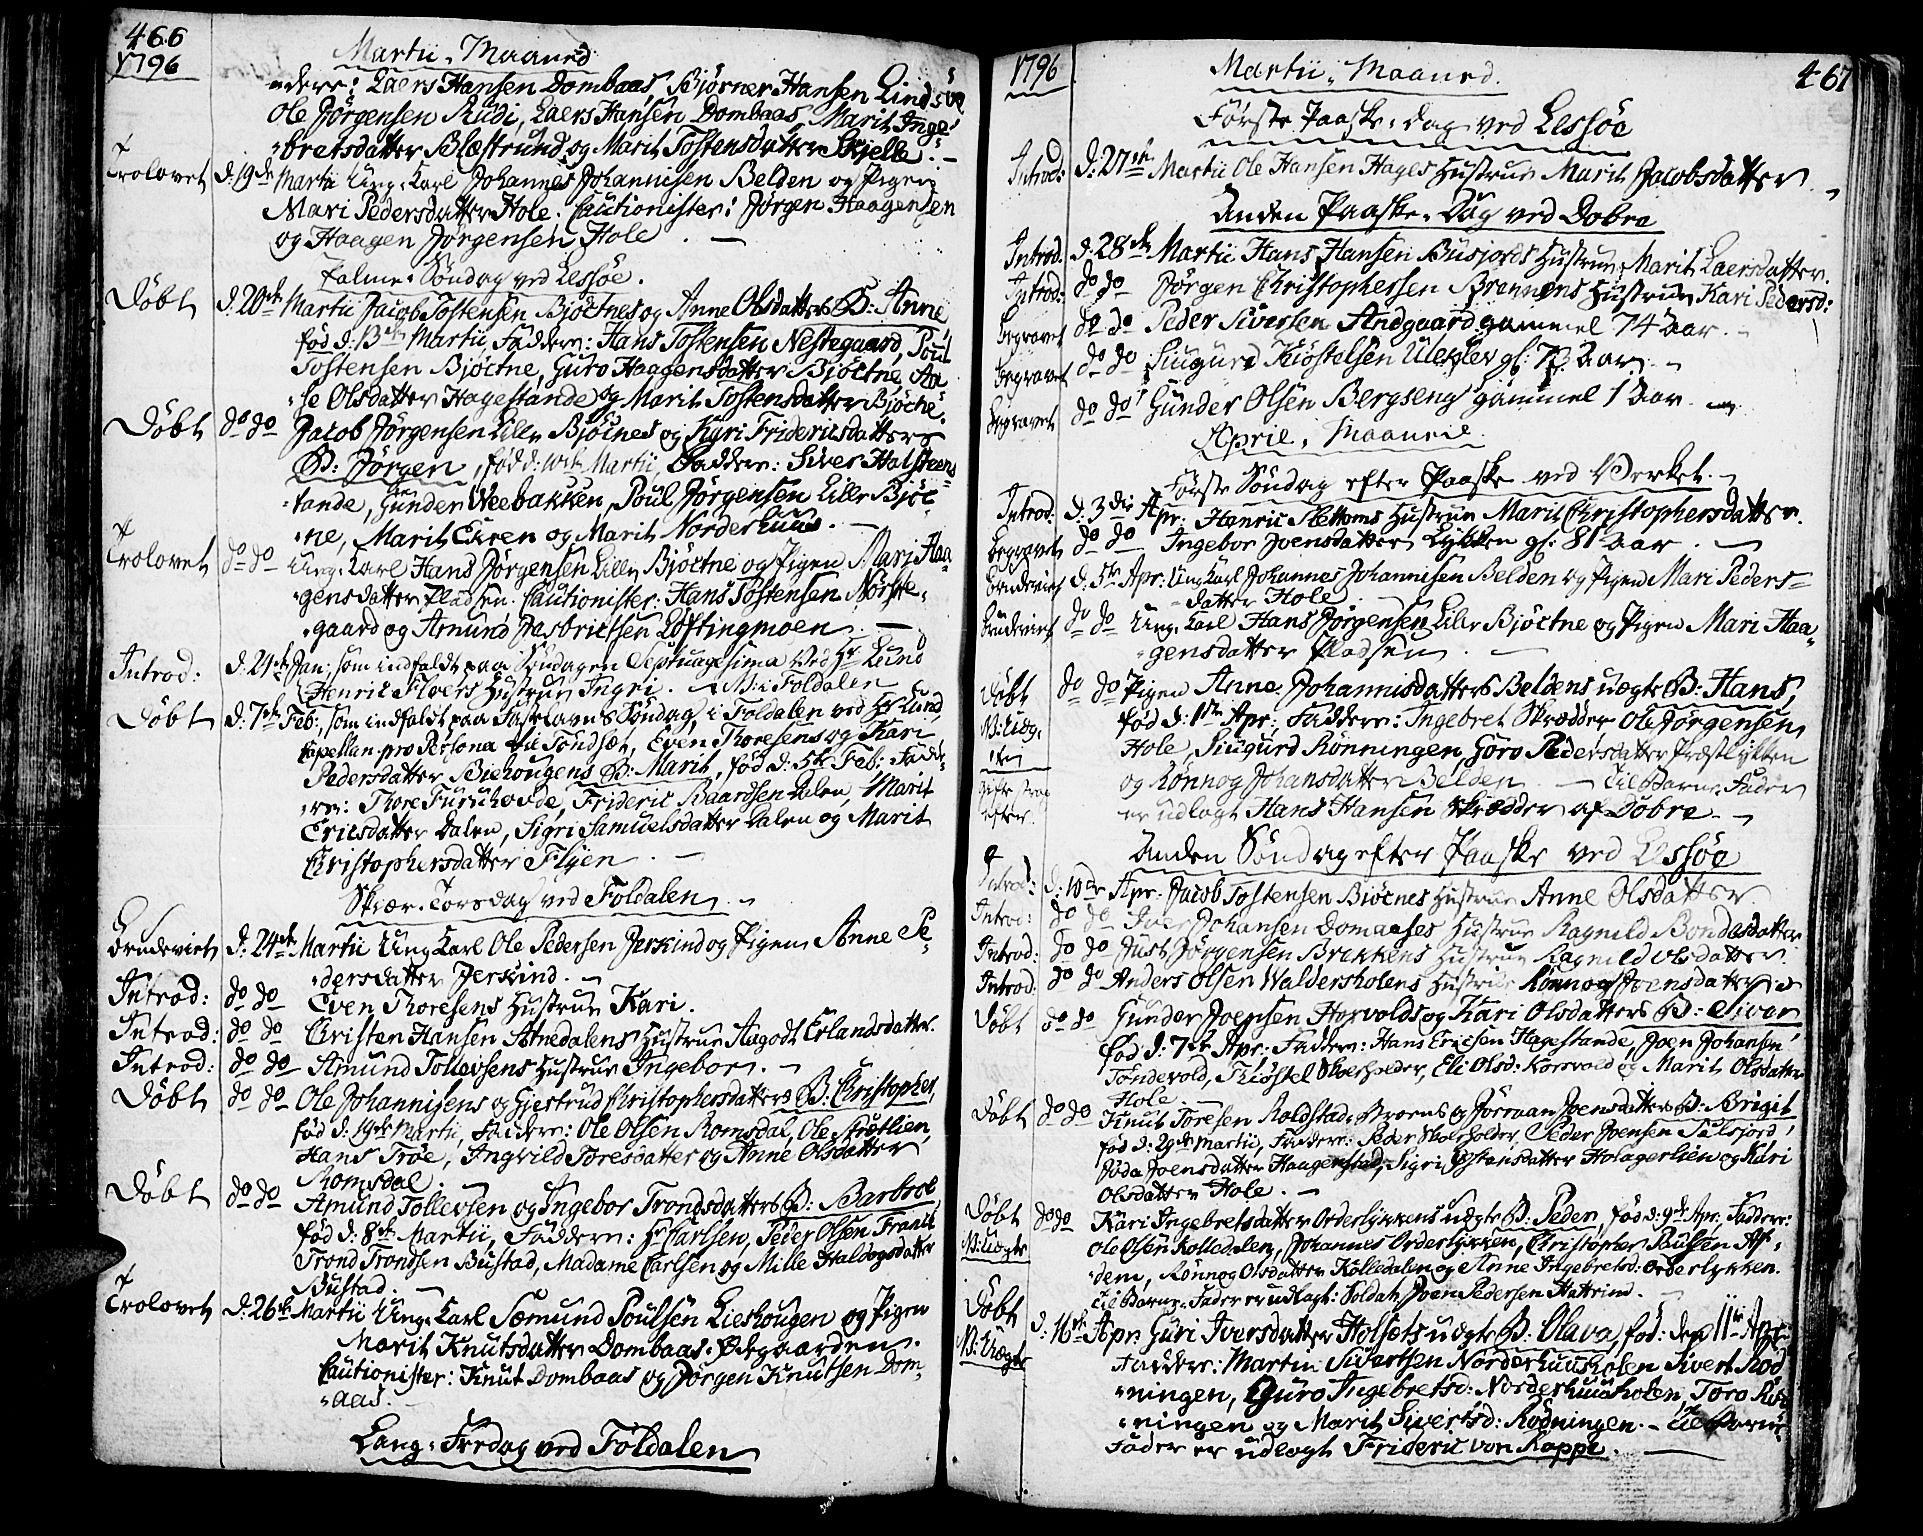 466
1796
Martii Maaned
-dere: Laers Hansen Dombaas, Bjørner Hansen Lindsøe
Ole Jørgensen Rudi, Laers Hansen Dombaas, Marit Inge-
-bretsdatter Blæstrund og Marit Tostensdatter Skjelle. -
Trolovet d. 19de Martii Ung-Karl Johannes Johannisen Belden og Pigen
Mari Pedersdatter Hole. Cautionister: Jørgen Haagensen
og Haagen Jørgensen Hole. -
Palme-Søndag ved Lessøe.
Døbt d. 20de Martii Jacob Tostensen Bjøctnes og Anne Olsdatters B: Anne
fød d. 13de Martii, Faddere: Hans Tostensen Nestegaard, Poul
Tostensen Bjøctne, Guro Haagensdatter Bjøctne, Aa-
-se Olsdatter Hagestande og Marit Tostensdatter Bjøctne.
Døbt do do Jacob Jørgensen Lille Bjøcnes og Sigri Fridericsdatters
B: Jørgen, fød d: Martii, Faddere: Siver Halsteens-
-tande, Gunder Weebakken, Poul Jørgensen Lille Bjøc-
-ne, Marit Ekren og Marit Norderhuus. -
Trolovet do do Ung-Karl Hans Jørgensen Lille Bjøctne og Pigen Mari Haa-
-gensdatter Pladsen. Cautionister: Hans Tostensen Norste-
-gaard og Amund Løftingmoen. -
Introd: d. 24de Jan: som indfaldt paa Søndagen Septuagesima ved Hr Lund
Henric Flyers Hustrue Ingri. - i Foldalen
Døbt d. 7de Feb:, som indfaldt paa Fastelavns Søndag, i Foldalen ved Hr Lund,
Capellan pro Persona til Tøndset, Even Thoresens og Kari
Pedersdatter Biekougens B: Marit, fød d: 5te Feb: Fadde-
-re: Thore Furuhovde, Frideric Baardsen Dalen, Marit
Ericsdatter Dalen, Sigri Samuelsdatter Dalen og Marit
Christophersdatter Flyen. -
Skier-Torsdag ved Foldalen. -
Brudeviet d. 24de Martii Ung Karl Ole Pedersen Jerkind og Pigen Anne Pe-
-dersdatter Jerkind. -
Introd: do do Even Thoresens Hustrue Kari.
Introd: do do Christen Hansen Atnedalens Hustrue Aagodt Erlandsdatter.
Introd: do do Amund Tollevsens Hustrue Ingebor. -
Døbt do do Ole Johannisens og Gjertrud Christophersdatters B: Christopher,
fød d: 19de Martii, Faddere: Ole Olsen Romsdal, Ole Strøtlien,
Hans Troe, Ingrild Toresdatter og Anne Olsdatter
Romsdal. -
Døbt do do Amund Tollevsen og Ingebor Trondsdatters B: Barbroe
fød d: 8de Martii, Faddere: Hr Carlsen, Peder Olsen
Trond Trondsen Bustad, Madame Carlsen og Mille Haldogsdatter
Bustad. -
Trolovet d. 26de Martii Ung-Karl Sæmund Poulsen Lieshougen og Pigen
Marit Knutsdatter Dombaas-Ødegaarden.
Cautionister: Knut Dombaas og Jørgen Knutsen Dom-
-aas. -
Lang-Fredag ved Foldalen
1796
467
Martii Maaned.
Første Paaske-dag ved Lessøe
Introd: d: 27de Martii Ole Hansen Hages Hustrue Marit Jacobsdatter. -
Anden Paaske-Dag ved Dobre
Introd: d: 28de Martii Hans Hansen Busjords Hustrue Marit Laersdatter.
Introd: do do Jørgen Christophersen Brennens Hustrue Kari Pedersd:
Begravet do do Peder Siversen Andgaard gammel 74 Aar. -
Begravet do do Siugurd Kiøstelsen Uleklev gl: Aar. -
Begravet do do Gunder Olsen Bergseng gammel 1 Aar. -
April Maaned
Første Søndag efter Paaske ved Verket. -
Introd: d. 3die Apr: Henric Slettems Hustrue Marit Christophersdatter.
Begravet do do Ingebor Joensdatter Lykken gl: 81 Aar. -
Brudeviet d. 5te Apr: Ung Karl Johannes Johannisen Belden og Pigen Mari Peders-
-datter Hole. -
Brudeviet do do Ung-Karl Hans Jørgensen Lille Bjøctne og Pigen Mari Haa-
-gensdatter Pladsen. -
Døbt do do Pigen Anne Johannisdatters Beldens uægte B: Hans,
fød d: 1ste Apr: Faddere: Ingebret Skrædder, Ole Jørgensen
Hole, Siugurd Rønningen, Goro Pedersdatter Prestlykken
og Rønnog Johansdatter Belden. - Til Barne-Fader
er udlagt Hans Hansen Skrædder af Dobre. -
Anden Søndag efter Paaske ved Lessøe
Introd: d: 10de Apr: Jacob Tostensen Bjøcnes Hustrue Anne Olsdatter.
Introd: do do Iver Johansen Domaases Hustrue Ragnild Bondesdatter
Introd: do do Just Jørgensen Brekkens Hustrue Ragnild Olsdatter.
Introd: do do Anders Olsen Waldersholens Hustrue Rønnog Joensdatter
Døbt do do Gunder Joensen Horvolds og Kari Olsdatters B: Sivar
fød d: 7de Apr: Faddere: Hans Ericsen Hagestande, Joen Johansen
Tøndevold, Thiøstel Skoeholder, Eli Olsd: Korsvold og Marit Olsdatter
Hole. -
Døbt do do Knut Toresen Roldstad-Broens og Jørran Joensdatters B: Brigit
fød d: 29de Martii, Faddere: Peder Skoeholder, Peder Joensen Tulsjord,
Joensdatter Haagenstad, Sigri Tostensdatter Holagerlien og Kari
Olsdatter Hole. -
Døbt do do Kari Ingebretsdatter Orderlykkens uægte B: Peder, fød d: 9de Apr: Faddere:
Uægte Ole Olsen Kolledalen, Johannes Orderlykken, Christopher Paulsen Af-
-dem, Rønnog Olsdatter Kolledalen og Anne Ingebretsd: Orderlykken.
Til Barne-Fader er udlagt: Soldat Joen Pedersen Hattrem. -
Døbt d: 16de Apr: Guri Iversdatter Holsets uægte B: Olava, fød: den 11te Apr:
Uægte Faddere: Martin Sivertsen Norderhuusholen, Sivert Rod-
-ningen, Guro Ingebretsd: Norderhuusholen, Toro Rød-
-ningen og Marit Sivertsd: Rodningen. - Til Barne-
Fader er udlagt Frideric von Kappe. -